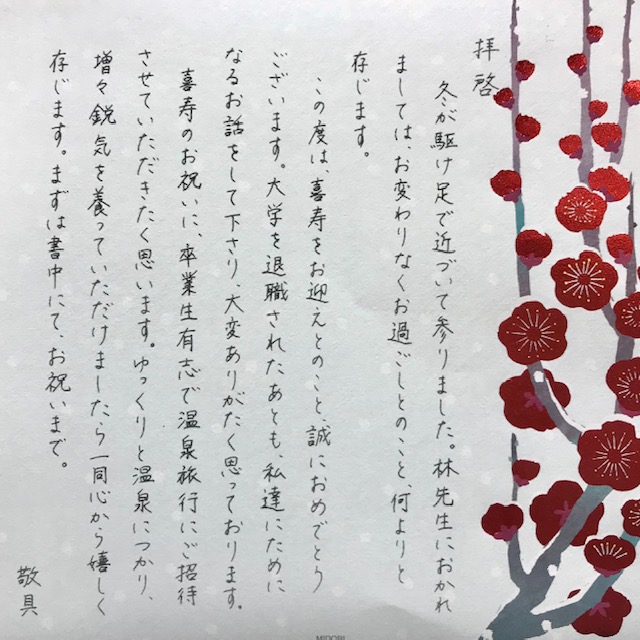 拝啓
冬が駆け足で近づいて参りました。林先生におかれ
ましては、お変わりなくお過ごしとのこと、何よりと
存じます。
この度は、喜寿をお迎えとのこと、誠におめでとう
ございます。大学を退職されたあとも、私達にために
なるお話をして下さり、大変ありがたく思っております。
喜寿のお祝いに、卒業生有志で温泉旅行にご招待
させていただきたく思います。ゆっくりと温泉につかり、
増々鋭気を養っていただけましたら一同心から嬉しく
存じます。まずは書中にて、お祝いまで。
敬具
MIDORI